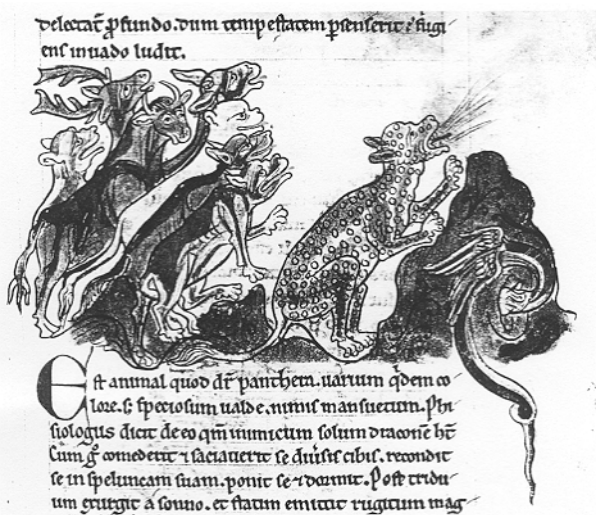 delectat̄ ꝓfundo. dum tempestatem p̄senserit ⁊ fugi
ens in uado ludit.
Est animal quod dr̄ panthera. uarium q̇dem co
lore. s; speciosum ualde. nimis mansuetum. Phi
siologus dicit de eo qm̄ inimicum solum draconē ht̄
Cum gͦ comederit ⁊ saciauerit se diuͥsis cibis. recondit
se in speluncam suam. ponit se ⁊ dormit. Post tridu
um exurgit a sōno. et statim emittit rugitum mag